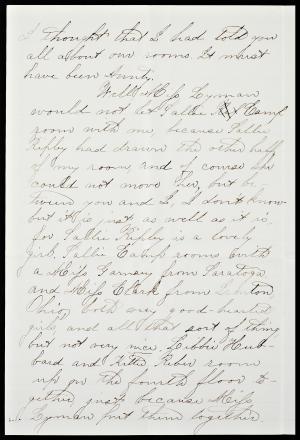 I thought that I had told you
all about our rooms. It must
have been Aunty.
Well Miss Lyman
would not let Sallie Camp
room with me, because Sallie
Ripley had drawn the other half
of my room, and of course she
could not move her, but be-
tween you and I, I don't know
but it is just as well as it is,
for Sallie Ripley is a lovely
girl. Sallie Camp rooms with
a Miss from Saratoga
and Miss Clark from
Ohio, both very good-hearted
girls, and all that sort of thing
but not very nice. Libbie Hub-
bard and Kittie room
up on the fourth floor to-
gether just because Miss
Lyman put them together.